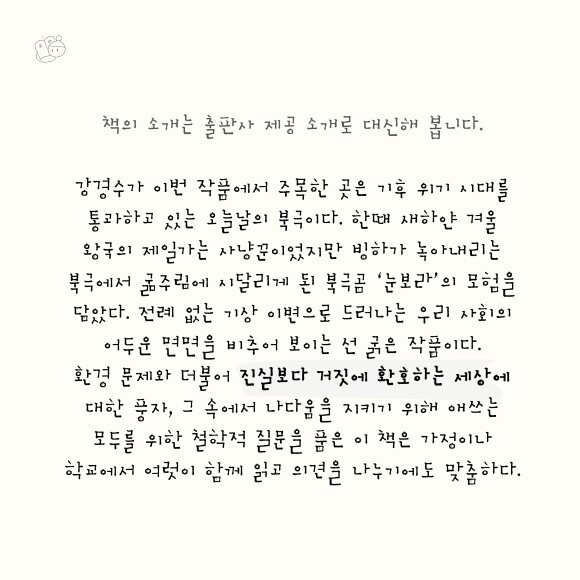 책의 소개는 출판사 제공 소개로 대신해 봅니다.
강경수가 이번 작품에서 주목한 곳은 기후 위기 시대를
통과하고 있는 오늘날의 북극이다. 한때 새하얀 겨울
왕국의 제일가는 사냥꾼이었지만 빙하가 녹아내리는
북극에서 굶주림에 시달리게 된 북극곰 ‘눈보라’의 모험을
담았다. 전례 없는 기상 이변으로 드러나는 우리 사회의
어두운 면면을 비추어 보이는 선 굵은 작품이다.
환경 문제와 더불어 진실보다 거짓에 환호하는 세상에
대한 풍자, 그 속에서 나다움을 지키기 위해 애쓰는
모두를 위한 철학적 질문을 품은 이 책은 가정이나
학교에서 여럿이 함께 읽고 의견을 나누기에도 맞춤하다.